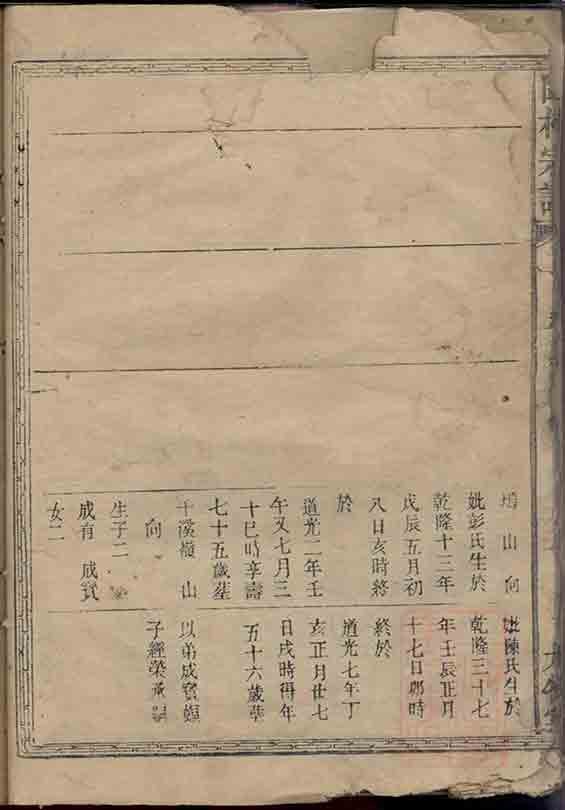 宗譜
山向
妣彭氏生於
乾隆十三年
戊辰五月初
八日亥時終
於
道光二年壬
午又七月三
十巳時享壽
七十五歲塟
千溪嶺 山
向
生子二
成有 成寳
女二
妣陳氏生於
乾隆三十七
年壬辰正月
十七日卯時
終於
道光七年丁
亥正月廿七
日戌時得年
五十六歲塟
以弟成寳
子經榮承嗣